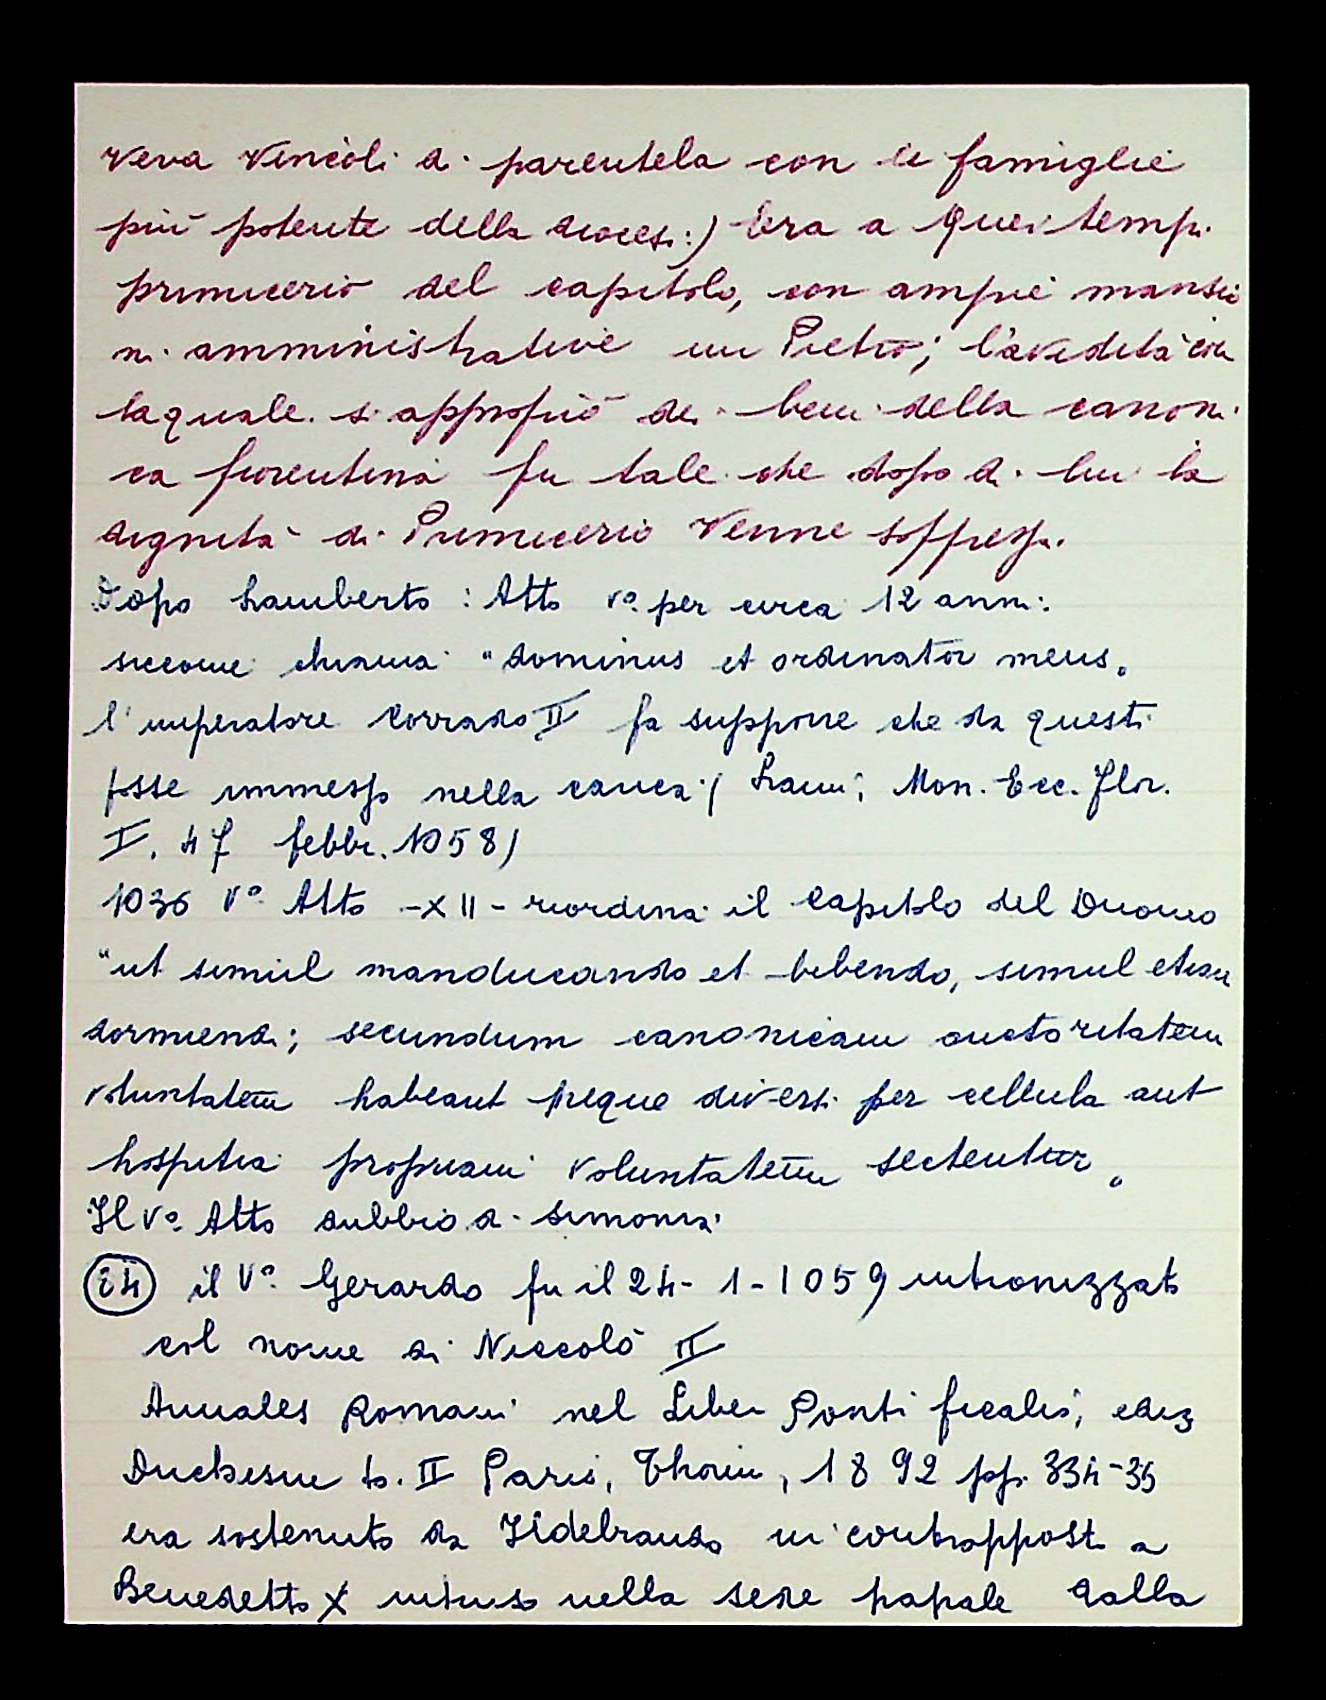 veva vincoli di parentela con le famiglie
più potente della diocesi:) Era a quei tempi
primicerio del capitolo, con ampie mansio
ni amministrative un Pietro; l'avidità con
la quale si appropiò dei beni della canoni
ca fiorentina fu tale che dopo di lui la
dignità di Primicerio venne soppressa.
Dopo Lamberto: Atto vº per circa 12 anni:
siccome chiama "dominus et ordinator meus„
l'imperatore Corrado II fa supporre che da questi
fosse immesso nella carica (Lami, Mon. Ecc. Flor.
I. 47 febbr. 1058)
1036 Vº Atto -XII- riordina il Capitolo del Duomo
"ut simul manducando et bibendo, simul etiam
dormiendi; secundum canonicam auctoritatem
voluntatem habeant neque diversi per cellula aut
hospitia propriam voluntatem sectentur„
Il Vº Atto dubbio di simonia
24 il Vº Gerardo fu il 24-1-1059 intronizzato
col nome di Niccolò II
Annales Romani nel Liber Pontificalis, ediz
Duchesne to. II Paris, Thorin, 1892 pp. 334-35
era sostenuto da Ildebrando in contrapposto a
Benedetto X intruso nella sede papale dalla